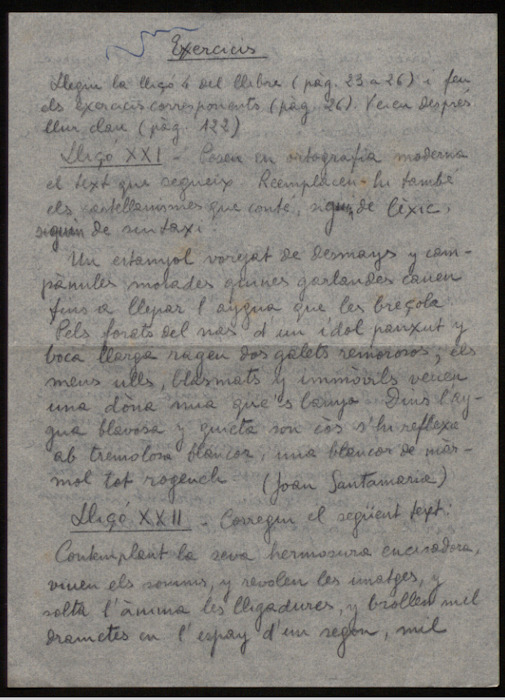 Exercicis
Llegiu la lliçó 4 del llibre (pàg. 23 a 26) i feu
els exercicis corresponents (pàg. 26). Veieu després
llur clau (pàg. 122)
Lliçó XXI - Poseu en ortografia moderna
el text que segueix. Reemplaceu-hi també
els castellanismes que conté, siguin de lèxic,
siguin de sintaxi.
Un estanyol vorejat de desmays y cam-
pànules morades quines garlandes cauen
fins a llepar l'aygua que les breçola.
Pels forats del nas d'un ídol panxut y
boca llarga ragen dos galets remorosos; els
meus ulls, blasmats y immòvils veuen
una dòna nua que's banya. Dins l'ay-
gua blavosa y quieta son còs s'hi reflexa
ab tremolosa blancor, una blancor de màr-
mol tot rogench. (Joan Santamaria)
Lliçó XXII - Corregiu el següent text:
Contemplant la seva hermosura encisadora,
vénen els somnis, y revolen les imatges, y
solta l'ànima les lligadures, y brollen mil
drametes en l'espay d'un segon, mil